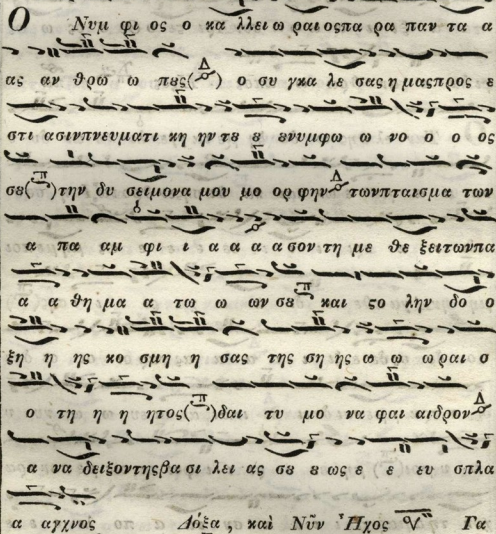 Ο Νυμ φι ος ο κα λλει ω ραι οςπα ρα παν τα α
ας αν θρω ω πȣς( Δ ) ο συ γκα λε σας η μαςπρος ε
στι ασινπνευματι κη ην τȣ ȣ ȣνυμφω ω νο ο ο ος
σȣ( π )την δυ σειμονα μου μο ορ φην Δ τωνπταισμα των
α πα αμ φι ι α α α ασον τη με θε ξειτωνπα
α α θη μα α τω ω ων σȣ π και ςο λην δο ο
ξη η ης κο σμη η σας της ση ης ω ω ωραι ο
ο τη η η ητος( π )δαι τυ μο να φαι αιδρον Δ
α να δειξοντηςβα σι λει ας σȣ ȣ ως ε ε ευ σπλα
α αγχνος Δόξα, καὶ Νῦν Ἦχος Γα